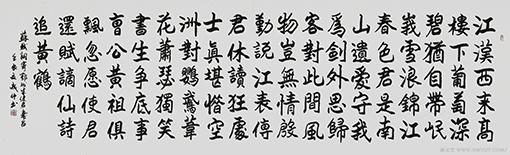 江漢西來高
樓下葡萄深
碧猶自帶岷
峩雪浪錦江
春色君是南
山遺愛守我
為劍外思歸
客對此間風
物豈無情殷
勤說江表傳
君休讀狂處
士真堪惜空
洲對鸚鵡葦
花蕭瑟獨笑
書生爭底事
曹公黃祖俱
飄忽愿使君
還賦謫仙詩
追黃鶴
蘇軾詞寄鄂州朱使君壽昌